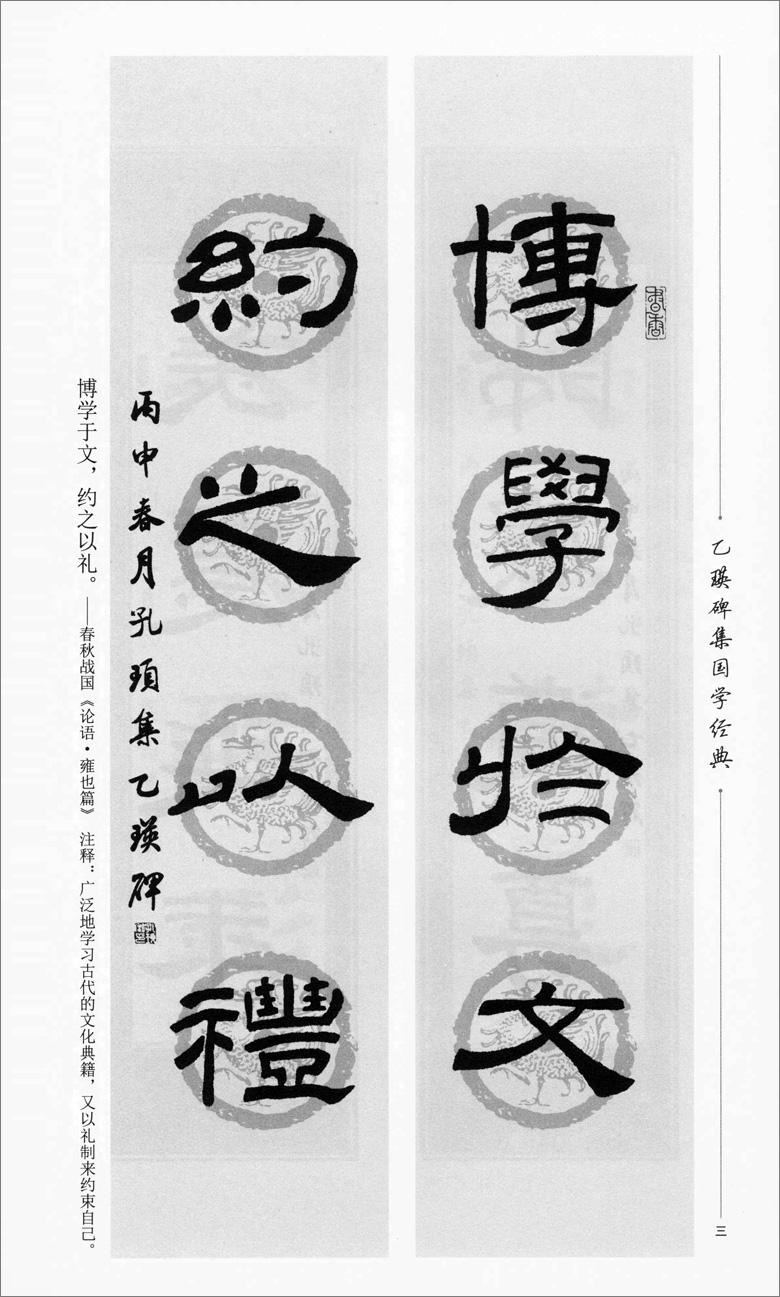 乙瑛碑集国学经典
三
書香
博學於文
約之以禮
丙申春月孔頊集乙瑛碑
博学于文，约之以礼。——春秋战国《论语·雍也篇》 注释：广泛地学习古代的文化典籍，又以礼制来约束自己。